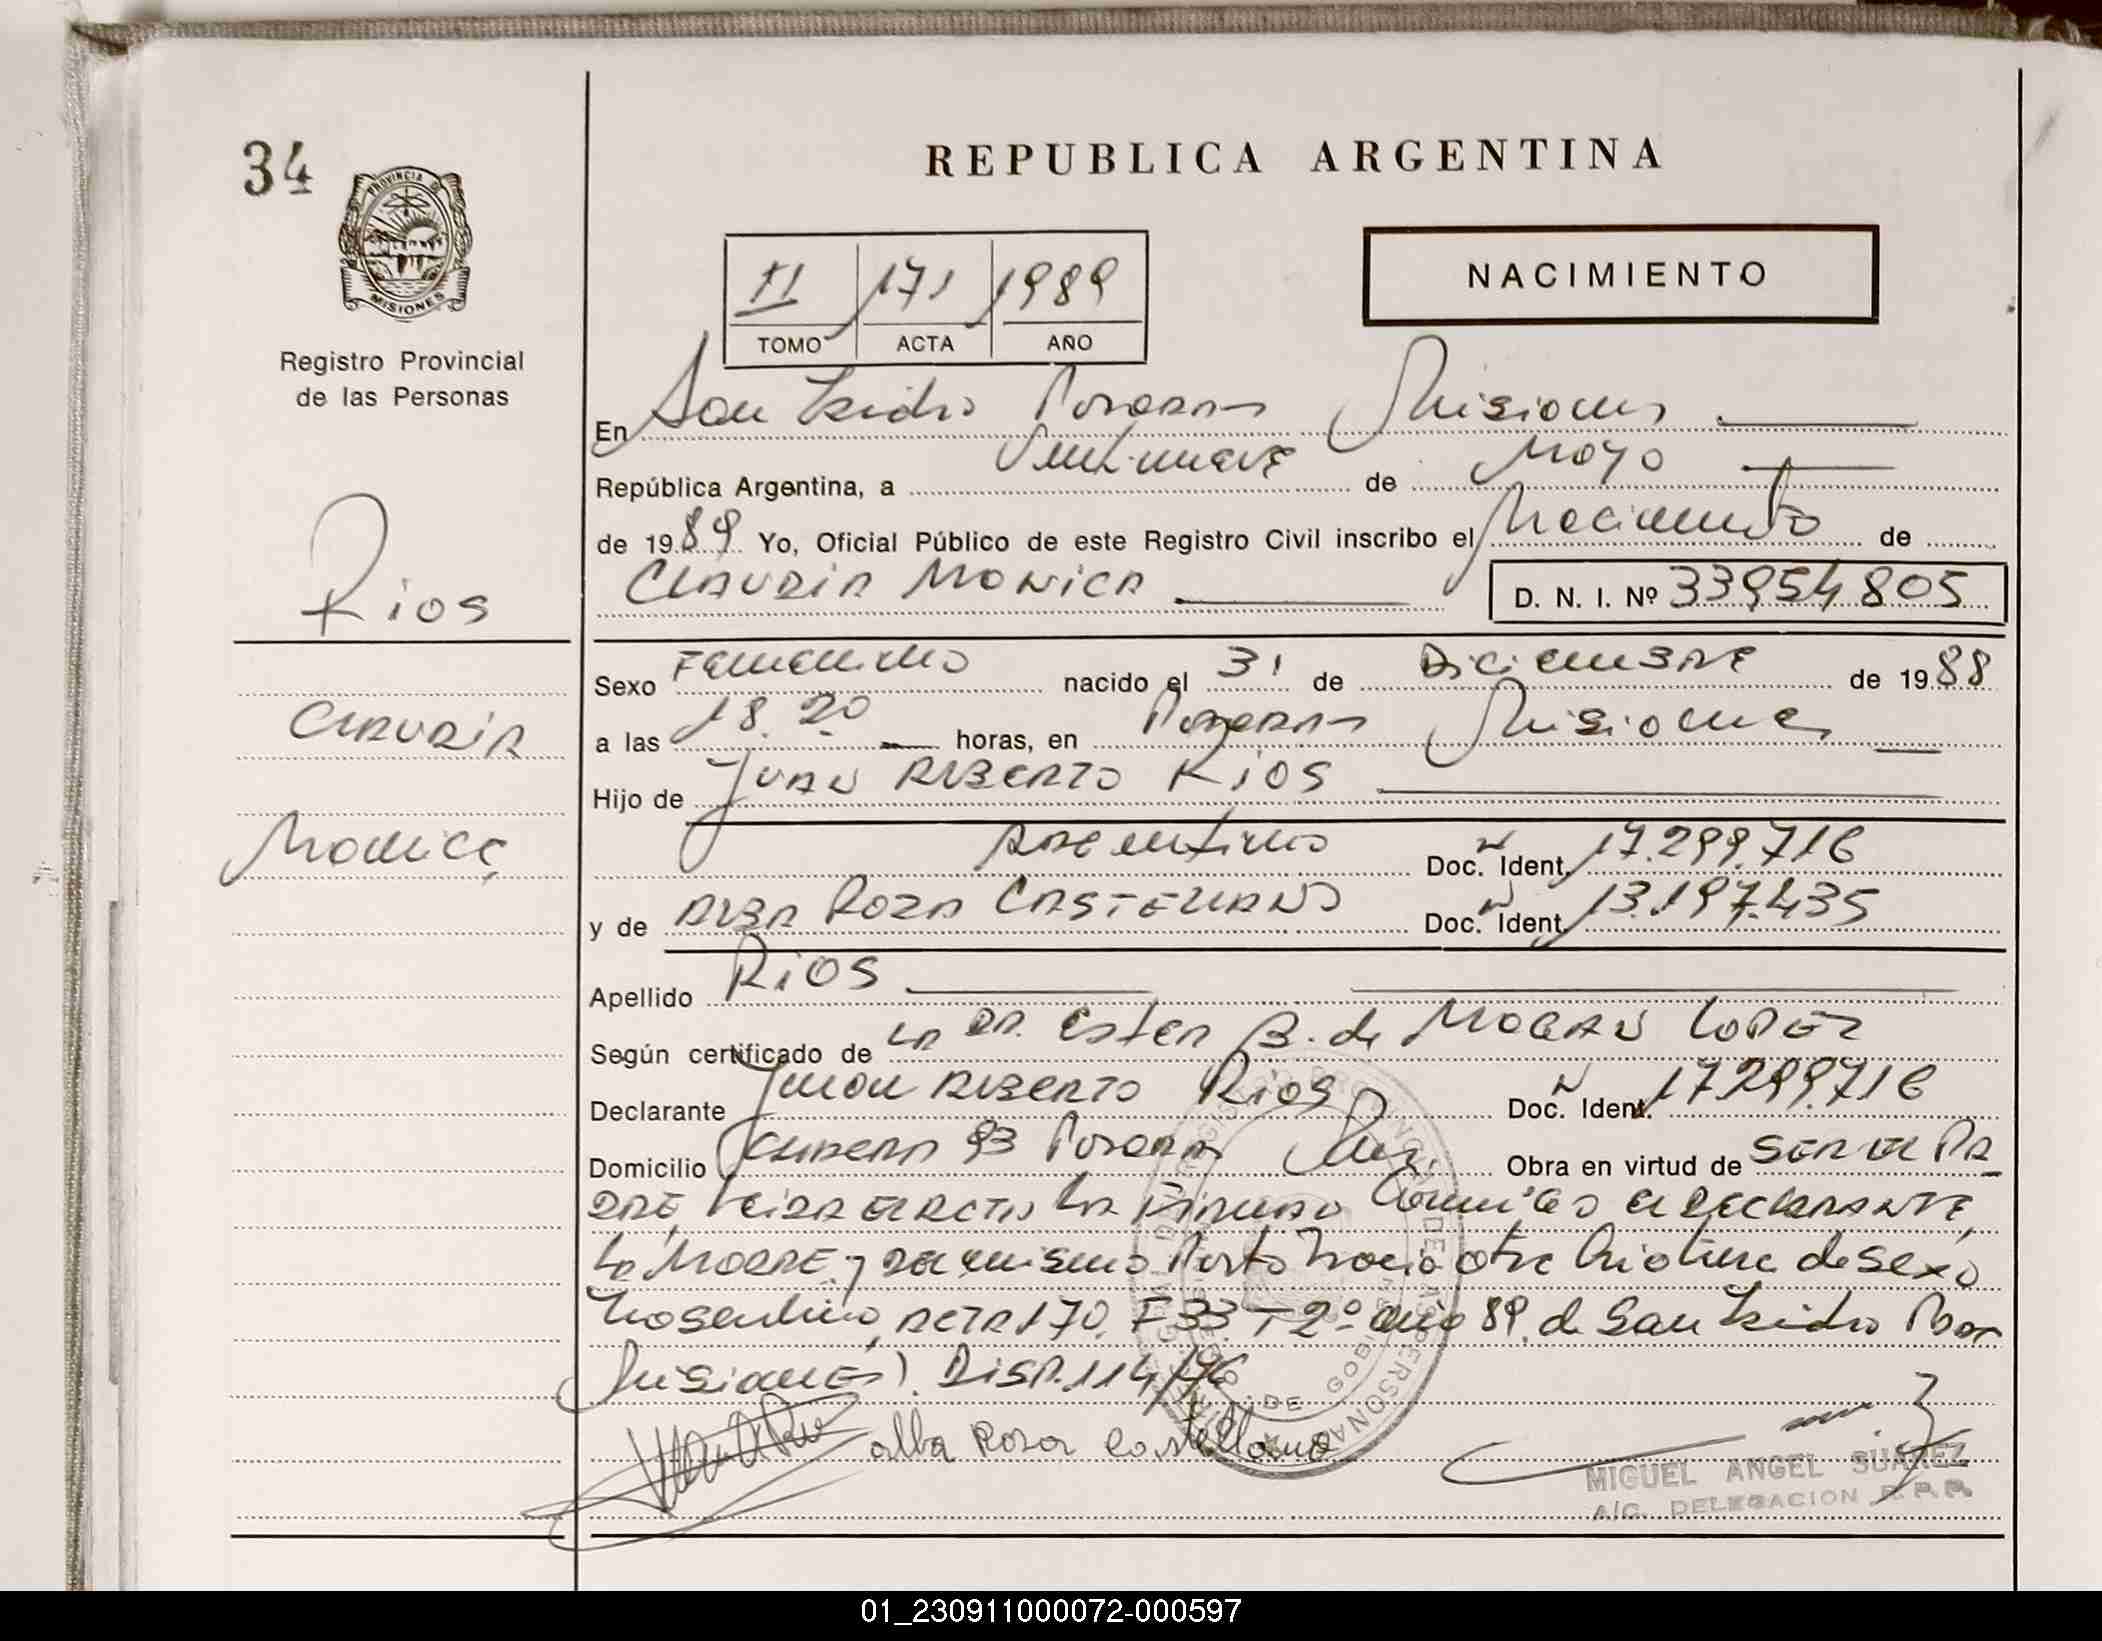 34
PROVINCIA DE
MISIONES
Registro Provincial
de las Personas
REPUBLICA ARGENTINA
II 171 1989
TOMO ACTA AÑO
NACIMIENTO
En San Isidro Posadas Misiones
República Argentina, a Veintinueve de Mayo
de 1989 Yo, Oficial Público de este Registro Civil inscribo el Nacimiento de
CLAUDIA MONICA D. N. I. Nº 33954805
Rios
Claudia
Monica
Sexo Femenino nacido el 31 de Diciembre de 1988
a las 18.20 horas, en Posadas Misiones
Hijo de Juan Alberto Rios
Argentino Doc. Nº Ident. 17.299.716
y de Alba Roza Castellano Doc. Nº Ident. 13.197.435
Apellido Rios
Según certificado de La Dra. Ester B. de Moran Lopez
Declarante Juan Alberto Rios Doc. Nº Ident. 17.299.716
Domicilio 93 Posadas Mis. Obra en virtud de Ser el Pa
dre, Leida el acta la Firman Conmigo el Declarante,
la Madre y del mismo Parto Nacio otra Criatura de sexo
Masculino, Acta 170. F 33 T 2º año 89. de San Isidro Pdas
Misiones). Disp. 114/96
alba Rosa Castellano
MIGUEL ANGEL SUAREZ
A/C. DELEGACION R.P.P.
01_230911000072-000597